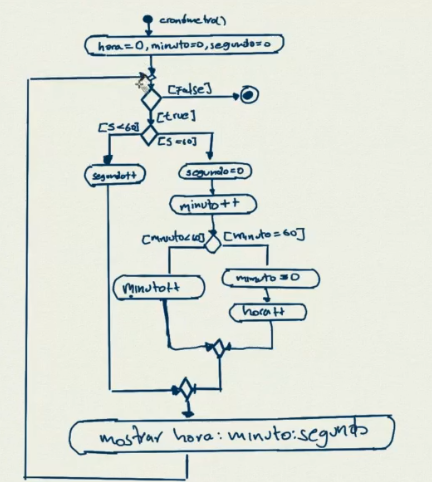 cronómetro()
hora=0, minuto=0, segundo=0
[False]
[true]
[S<60]
[S=60]
segundo++
segundo=0
minuto++
[minuto<60]
[minuto=60]
minuto++
minuto=0
hora++
mostrar hora:minuto:segundo